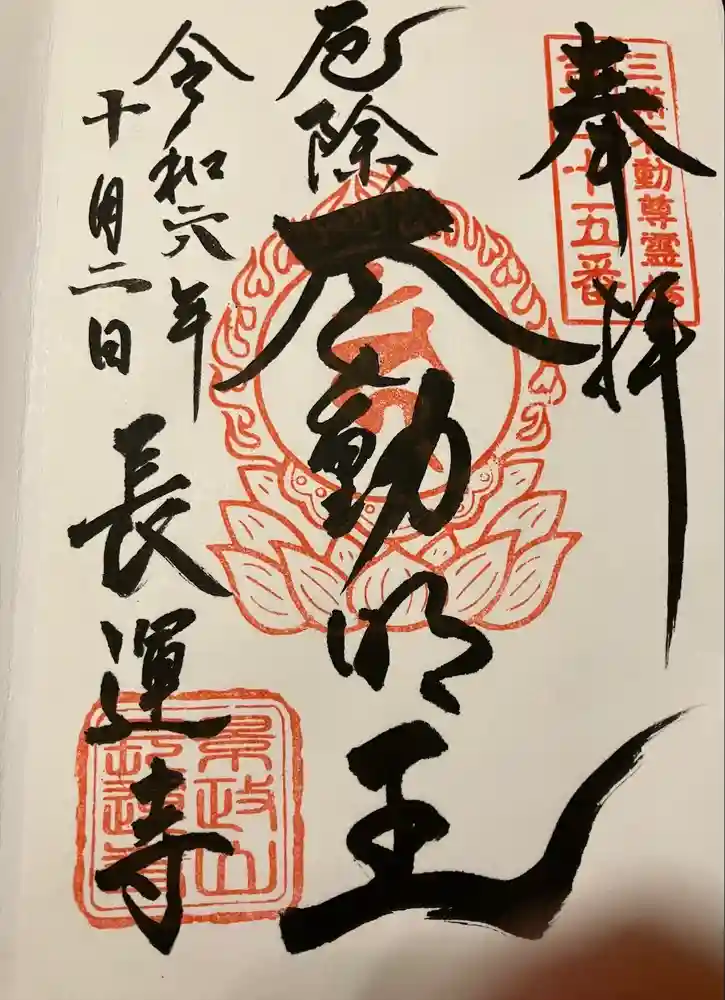 奉拝
三浦不動尊霊場
十五番
厄除
不動明王
令和六年
十月二日
長運寺